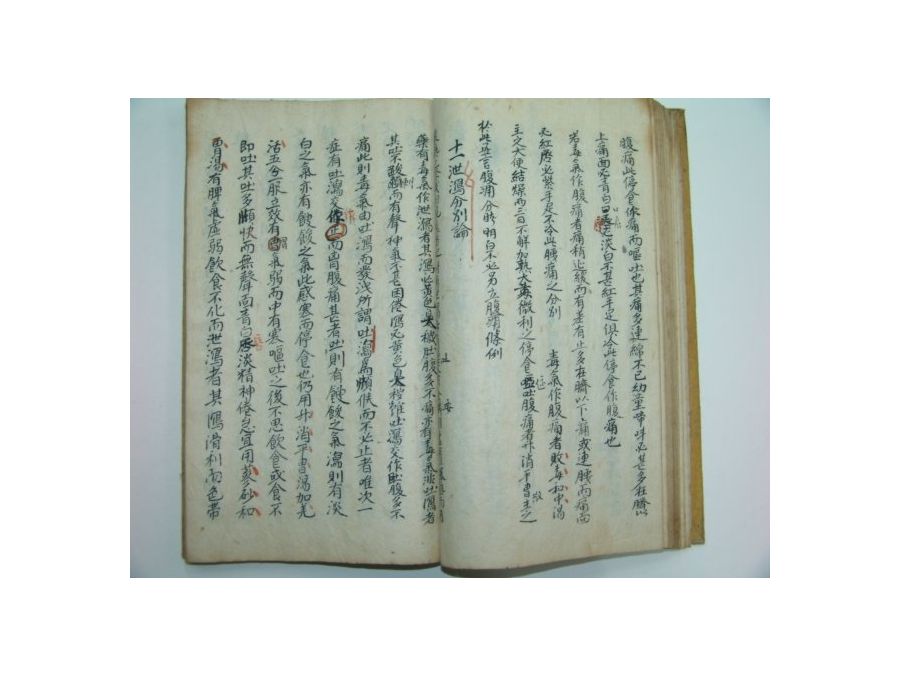 腹痛此停食作痛而嘔吐也其痛多連綿不已幼童啼哭必甚多在臍以
上痛面必青白唇必淡白不甚紅手足俱冷此停食作腹痛也
若毒氣作腹痛者痛稍止緩而有差有止多在臍以下痛或連腰而痛面
必紅唇必紫手足不冷此腰痛之分別 毒氣作腹痛者敗毒和中湯
主之大便結燥兩三日不解加熟大黃微利之停食嘔吐腹痛者升消平胃主之
於此先言腹痛分時明白不必另立腹痛條例
十一泄瀉分別論
藥有毒氣作泄瀉者其瀉必黃色臭穢肚腹多不痛亦有毒氣吐瀉者
其吐酸而有聲神氣不甚困倦瀉必黃色臭穢雖吐瀉交作肚腹多不
痛此則毒氣由吐瀉而發洩所謂吐瀉為順候而不必止者唯次一
症有吐瀉交作而胃腹痛甚者吐則有餿酸之氣瀉則有淡
白之氣亦有餿酸之氣此感寒而停食也仍用升消平胃湯加羌
活五分一服立效有胃氣弱而中有寒嘔吐之後不思飲食或食不
即吐其吐多順快而無聲面青白唇淡精神倦怠宜用蔘砂和
胃湯有脾氣虛弱飲食不化而泄瀉者其瀉滑利而色帶